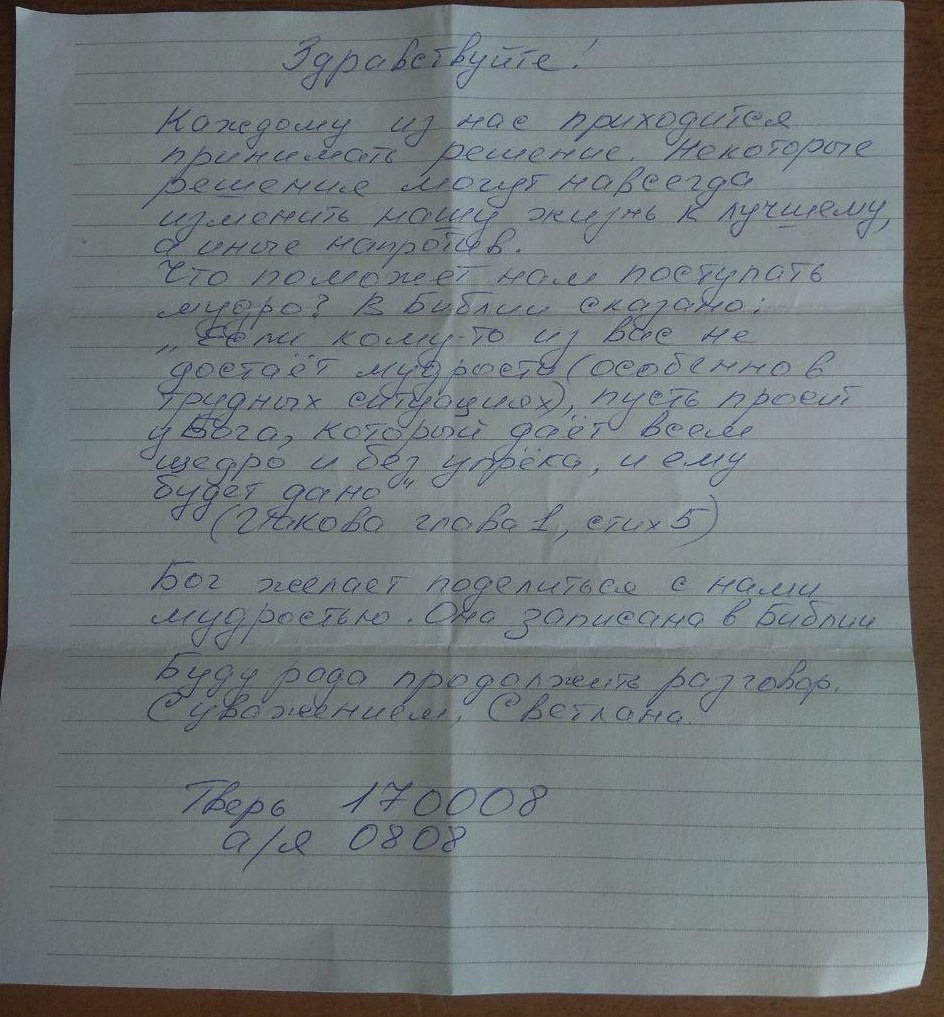 Здравствуйте!
Каждому из нас приходится
принимать решение. Некоторые
решения могут навсегда
изменить нашу жизнь к лучшему,
а иные напротив.
Что поможет нам поступать
мудро? В Библии сказано:
„Если кому-то из вас не
достаёт мудрости (особенно в
трудных ситуациях), пусть просит
у Бога, который даёт всем
щедро и без упрёка, и ему
будет дано"
(Иакова глава 1, стих 5)
Бог желает поделиться с нами
мудростью. Она записана в Библии
Буду рада продолжить разговор.
С уважением, Светлана.
Тверь 170008
а/я 0808